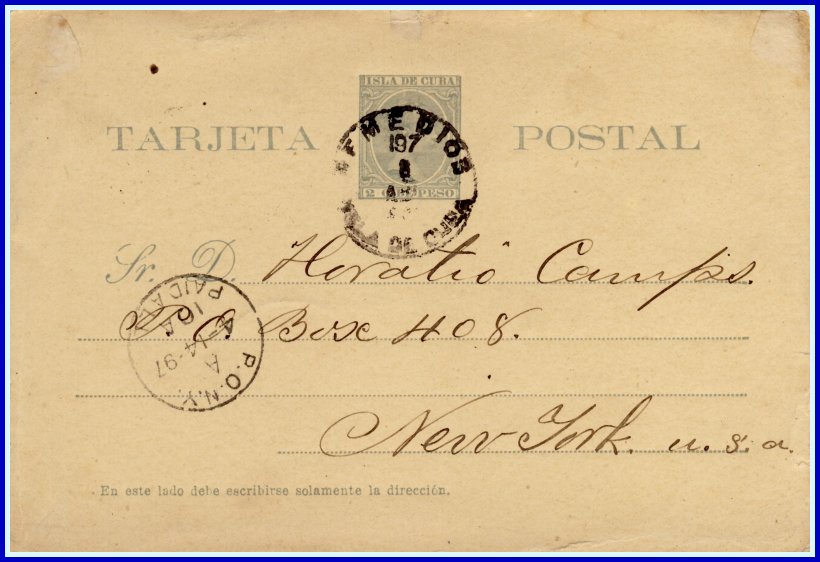 ISLA DE CUBA
TARJETA POSTAL
2 PESO
REMEDIOS
197
8
AB
ISLA DE CUBA
Sr. D. Horatio Camps.
P.O. Box 408.
New York. u. s. a.
P.O.N.Y.
A
4-14-97
10 A
PAID ALL
En este lado debe escribirse solamente la dirección.